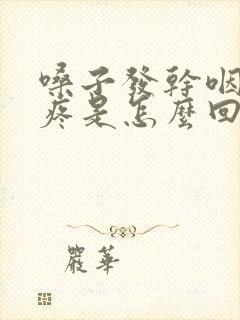 嗓子發幹咽
疼是怎麼回
嚴華